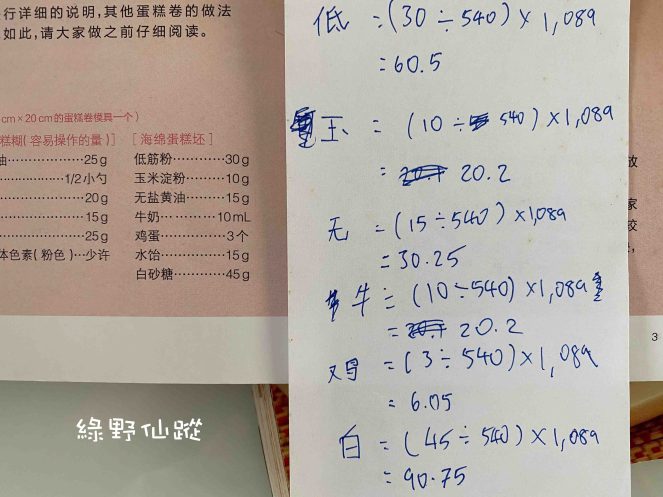 行详细的说明,其他蛋糕卷的做法
如此,请大家做之前仔细阅读。
cm×20 cm的蛋糕卷模具一个)
糕糊(容易操作的量)]
油……………25 g
……………1/2小勺
……………20 g
……………15 g
……………25 g
体色素(粉色)…少许
[海绵蛋糕坯]
低筋粉…………30 g
玉米淀粉………10 g
无盐黄油………15 g
牛奶…………10 mL
鸡蛋……………3个
水饴……………15 g
白砂糖…………45 g
低 = (30 ÷ 540) × 1,089
= 60.5
玉 = (10 ÷ 540) × 1,089
= 20.2
无 = (15 ÷ 540) × 1,089
= 30.25
牛 = (10 ÷ 540) × 1,089
= 20.2
鸡 = (3 ÷ 540) × 1,089
= 6.05
白 = (45 ÷ 540) × 1,089
= 90.75
3
綠野仙蹤